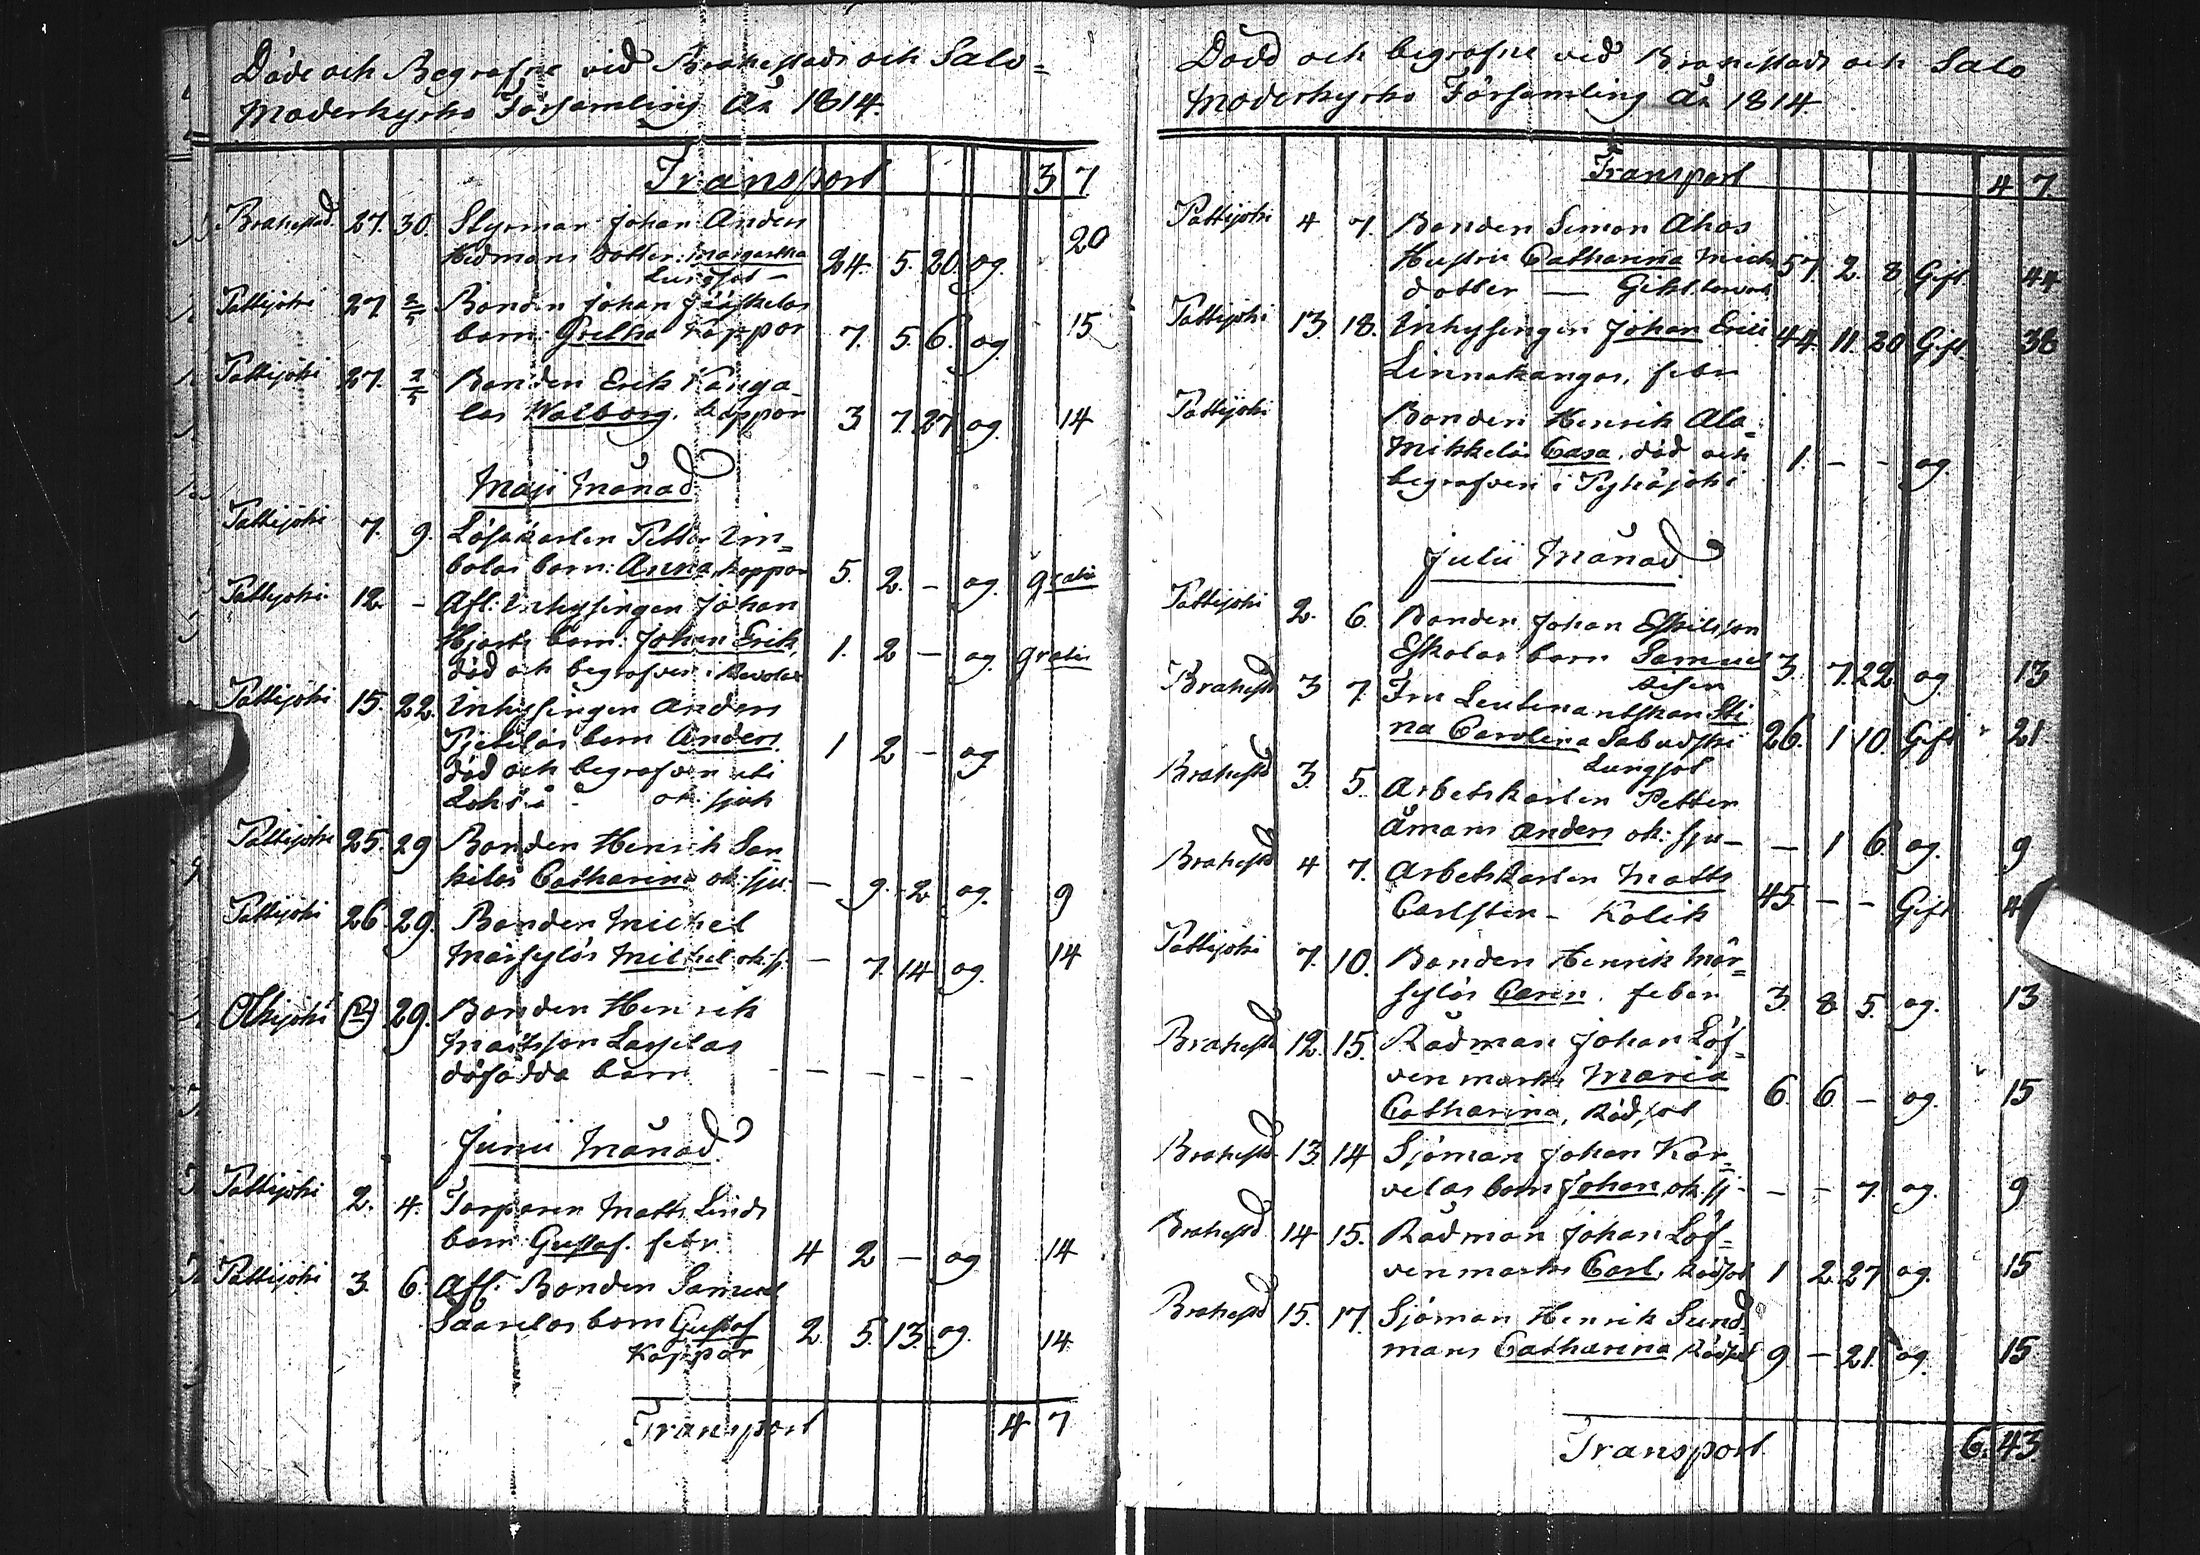 Döde och Begrafne vid Brahestads och Salo=
Moderkyrko Församling År 1814.
Transport 3 7
Brahestad. 27. 30. Styrman Johan Anders
Hedmans dotter: Margaretha 24. 5. 20. og. 20
Lungsot –
Pattijoki 27 2/5 Bonden Johan
barn: Gretha Koppor 7. 5. 6. og. 15
Pattijoki 27. 2/5 Bonden Erik Kanga-
las Walborg. koppor 3 7. 27 og. 14
Maji Månad
Pattijoki 7. 9. Löskarlen Petter
barn: Anna, koppor 5. 2. – og. gratis
Pattijoki 12. – Afl: Inhysingen Johan
Hjorts barn: Johan Erik, 1. 2 – og. gratis
död och begrafven i Revolax
Pattijoki 15. 22. Inhysingen Anders
barn Anders 1 2 – og
död och begrafven uti
ok: sjuk
Pattijoki 25. 29 Bonden Henrik
Catharina ok: sju. – 9. 2 og. 9
Pattijoki 26 29. Bonden Michel
Mörsylös Michel ok: sj. – 7. 14 og. 14
Olkijoki 29. Bonden Henrik
Mattsson Lasselas
dösfödda barn – – – – –
Junii Månad
Pattijoki 2. 4. Torparen Matts Linds
barn: Gustaf. feber 4 2 – og 14
Pattijoki 3. 6. Afl. Bonden Samuel
Saarelas barn Gustaf 2. 5. 13. og. 14
Koppor
Transport 4 7
Död och begrafne vid Brahestads och Salo
Moderkyrko Församling År 1814
Transport 4 7.
Pattijoki 4 7. Bonden Simon Ahos
Hustru Catharina Mich 57. 2. 8. Gift 44
dotter —
Pattijoki 13. 18. Inhysingen Johan Erici 44. 11. 20 Gift. 38
Linnakangas, feber
Pattijoki Bonden Henrik Ala=
Mikkelas Casa, död och 1. – – og.
begrafven i Pyhäjoki
Julii Månad
Pattijoki 2. 6. Bonden Johan Eskilsson
Eskolas barn Samuel 3. 7. 22. og 13
Brahestd 3 7. Fru Leutenantskan Sti
na Carolina 26. 1 10. Gift 21
Lungsot
Brahestd 3. 5. Arbetskarlen Petter
Åmans Anders ok: sju– – 1 6. og. 9
Brahestd 4 7. Arbetskarlen Matts
Carlsten – Kolik 45. – – Gift 4
Pattijoki 7. 10. Bonden Henrik Mör=
sylös Carin. feber 3. 8. 5. og. 13
Brahestd 12. 15. Rådman Johan Löf=
venmarks Maria 6. 6 – og. 15
Catharina, Rödsot
Brahestd 13. 14 Sjöman Johan Kar=
velas barn Johan, ok. sj– – – 7. og. 9
Brahestd 14 15. Rådman Johan Löf=
venmarks Carl, Rödsot 1 2. 27 og. 15
Brahestd 15. 17. Sjöman Henrik Sund=
mans Catharina Rödsot 9 – 21. og. 15
Transport 6. 43